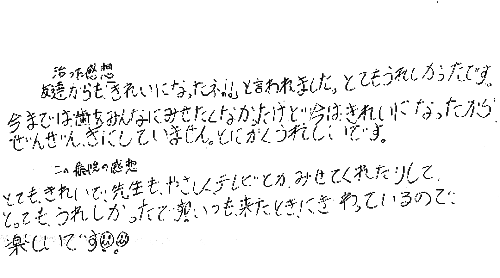 治った感想
友達からも、きれいになったネ!!。と言われました。とてもうれしかったです。
今までは歯をみんなにみせたくなかったけど今はきれいになったから
ぜんぜん、きにしていません。とにかくうれしいです。
この病院の感想
とても、きれいで、先生も、やさしくテレビとか、みせてくれたりして、
とっても、うれしかったです。いつも来たときに、きまっているので
楽しいです